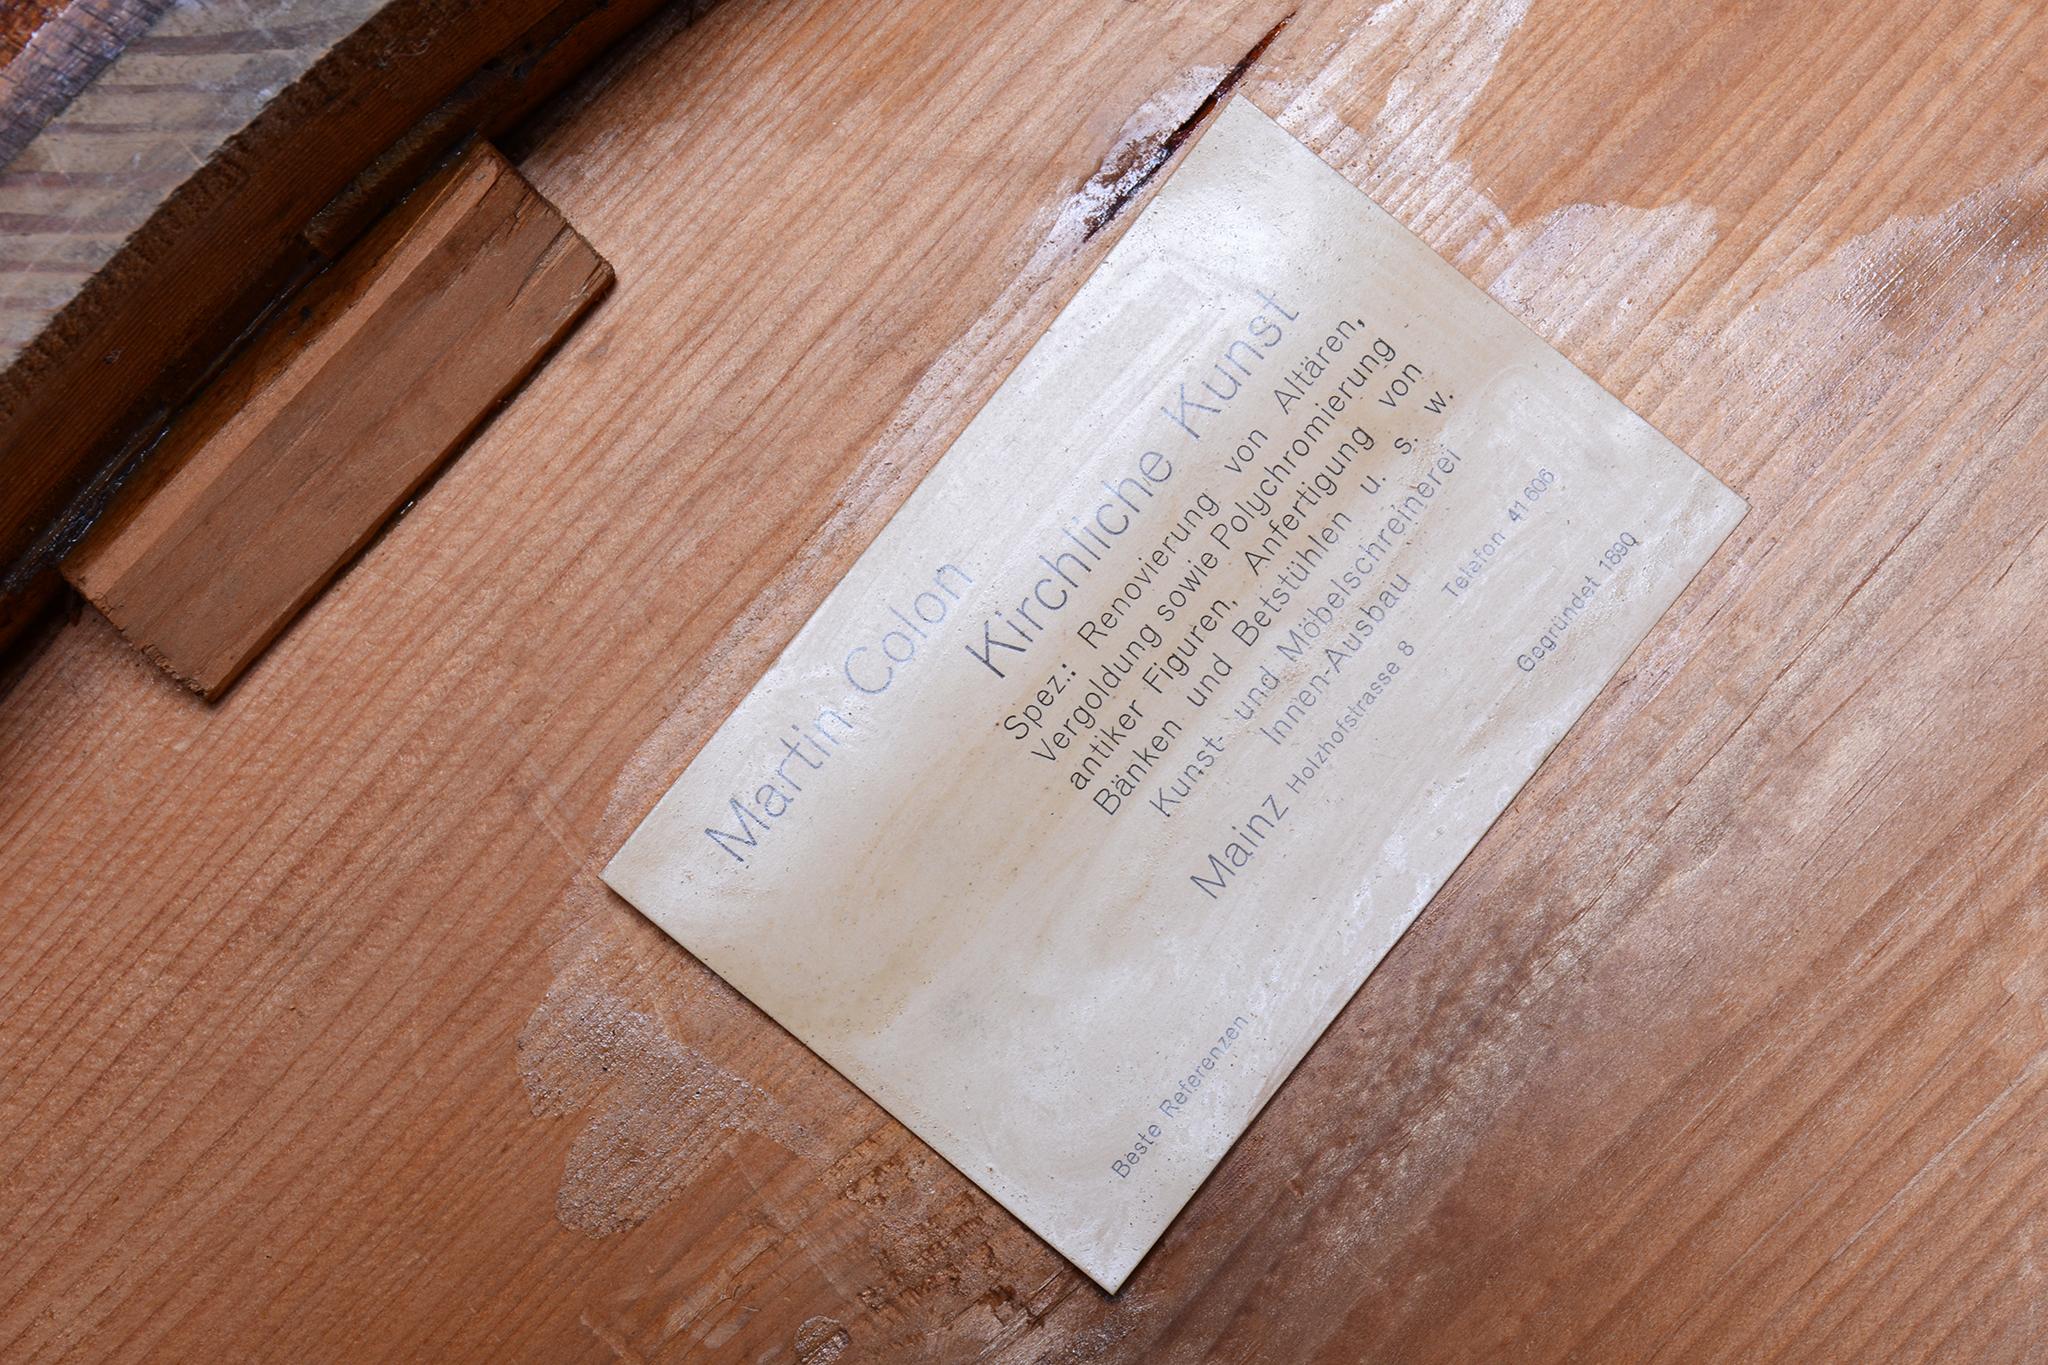 Martin Colon
Kirchliche Kunst
Spez.: Renovierung von Altären,
Vergoldung sowie Polychromierung
antiker Figuren, Anfertigung von
Bänken und Betstühlen u. s. w.
Kunst- und Möbelschreinerei
Innen-Ausbau
Mainz Holzhofstrasse 8 Telefon 41 606
Beste Referenzen Gegründet 1890